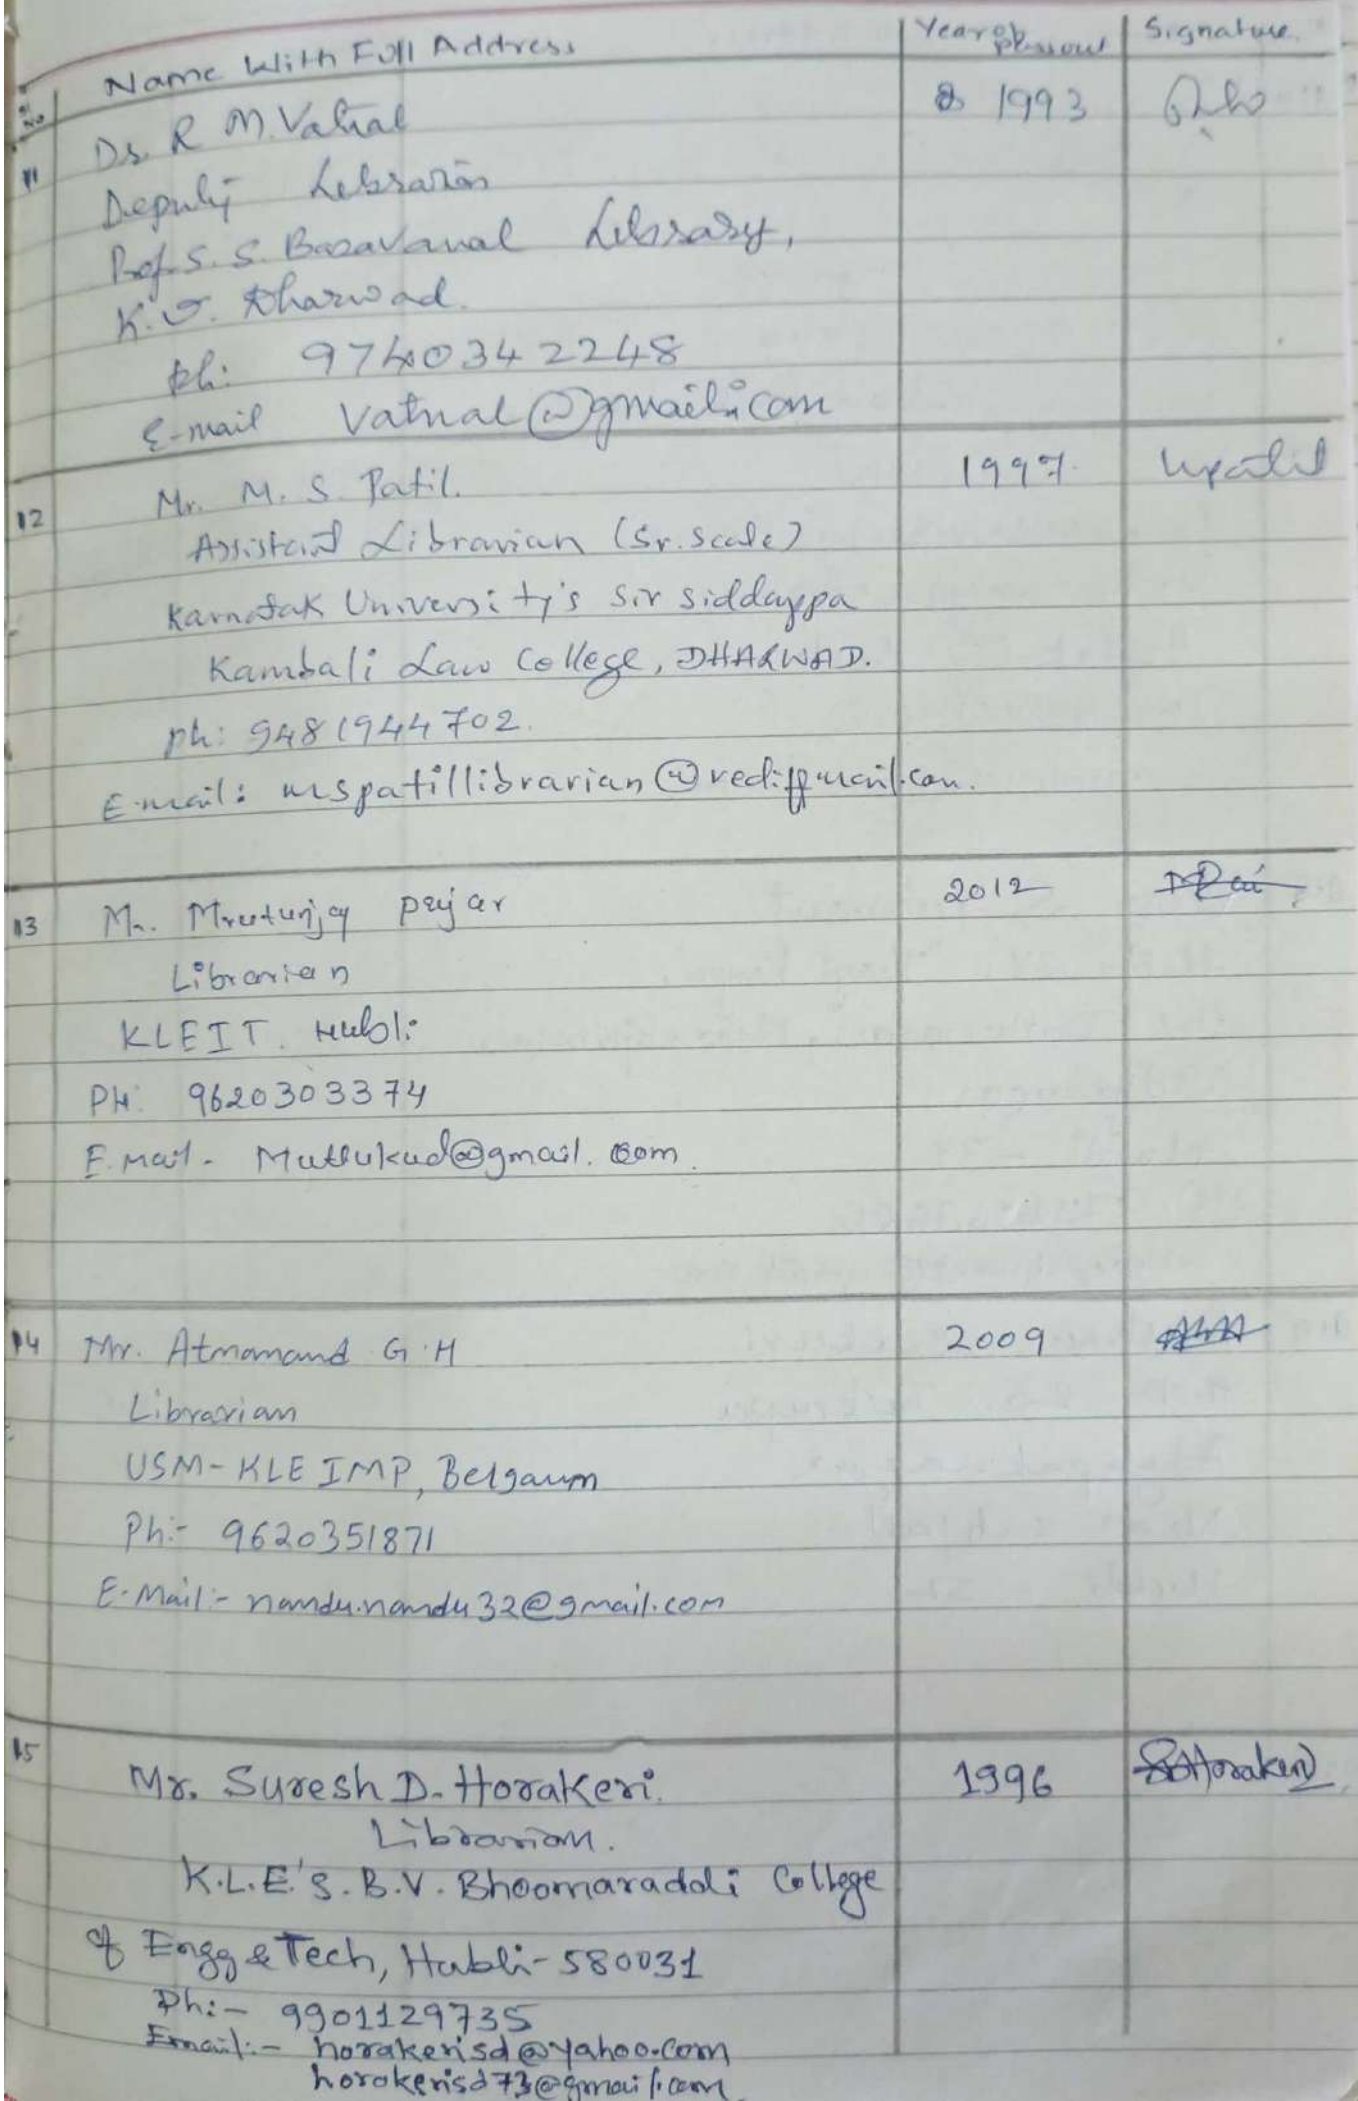 Sl No Name With Full Address Year of passout Signature
11 Dr. R M. Vatnal 1993
Deputy Librarian
Prof. S. S. Basavanal Library,
K.U. Dharwad.
ph: 9740342248
E-mail vatnal@gmail.com
12 Mr. M. S. Patil. 1997
Assistant Librarian (Sr. Scale)
Karnatak University's Sir Siddappa
Kambali Law College, DHARWAD.
ph: 9481944702.
E-mail: mspatillibrarian@rediffmail.com.
13 Mr. Mrutunjay pujar 2012
Librarian
KLEIT. Hubli
PH: 9620303374
E. Mail - Muttukud@gmail.com.
14 Mr. Atmanand G.H 2009
Librarian
USM-KLE IMP, Belgaum
Ph:- 9620351871
E-Mail:- nandu.nandu32@gmail.com
15 Mr. Suresh D. Horakeri. 1996 SDHorakeri
Librarian.
K.L.E.'s. B.V. Bhoomaraddi College
of Engg & Tech, Hubli-580031
Ph:- 9901129735
Email:- horakerisd@yahoo.com
horakerisd73@gmail.com